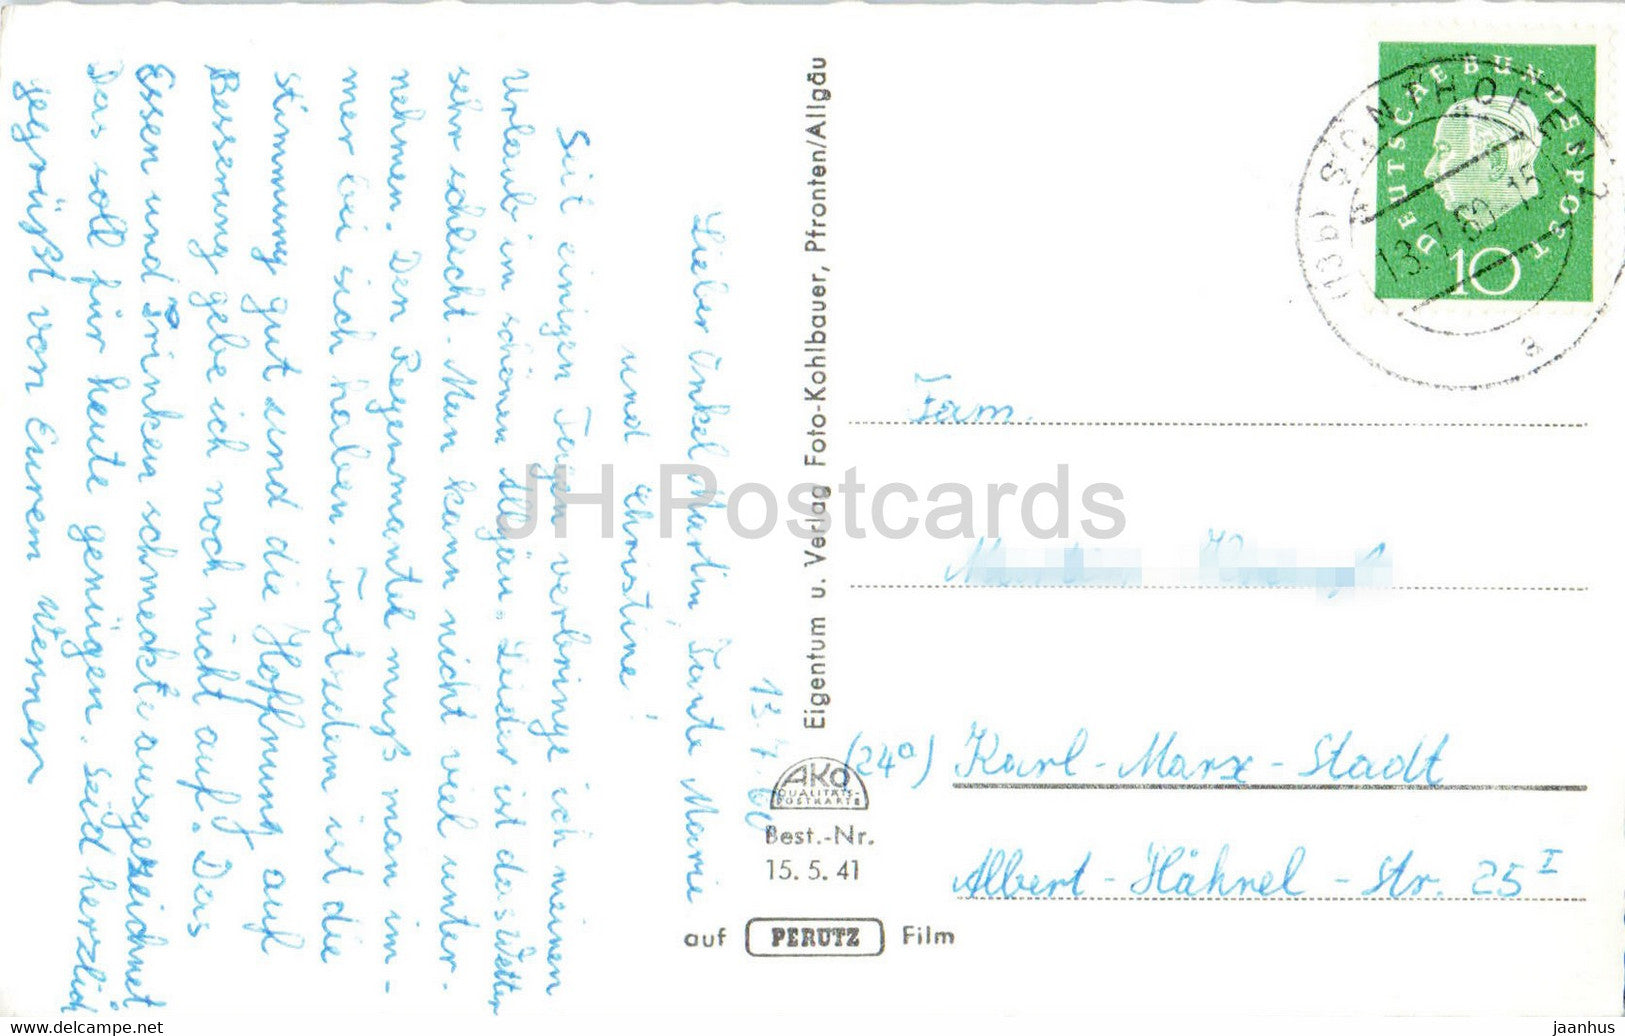 13.7.60
Lieber Onkel Martin, Tante Marie
und Christine!
Seit einigen Tagen verbringe ich meinen
Urlaub im schönen Allgäu. Leider ist das Wetter
sehr schlecht. Man kann nicht viel unter-
nehmen. Den Regenmantel muß man im-
mer bei sich haben. Trotzdem ist die
Stimmung gut und die Hoffnung auf
Besserung gebe ich noch nicht auf. Das
Essen und Trinken schmeckte ausgezeichnet.
Das soll für heute genügen. Seid herzlich
gegrüßt von Eurem Werner
Eigentum u. Verlag Foto-Kohlbauer, Pfronten/Allgäu
AKO
QUALITÄTS-
POSTKARTE
Best.-Nr.
15. 5. 41
auf PERUTZ Film
DEUTSCHE BUNDESPOST
10
(13b) SONTHOFEN 2
13.7.60-15
a
Fam.
(24a) Karl-Marx-Stadt
Albert-Hähnel-Str. 25 I
JH Postcards
www.delcampe.net
jaanhus